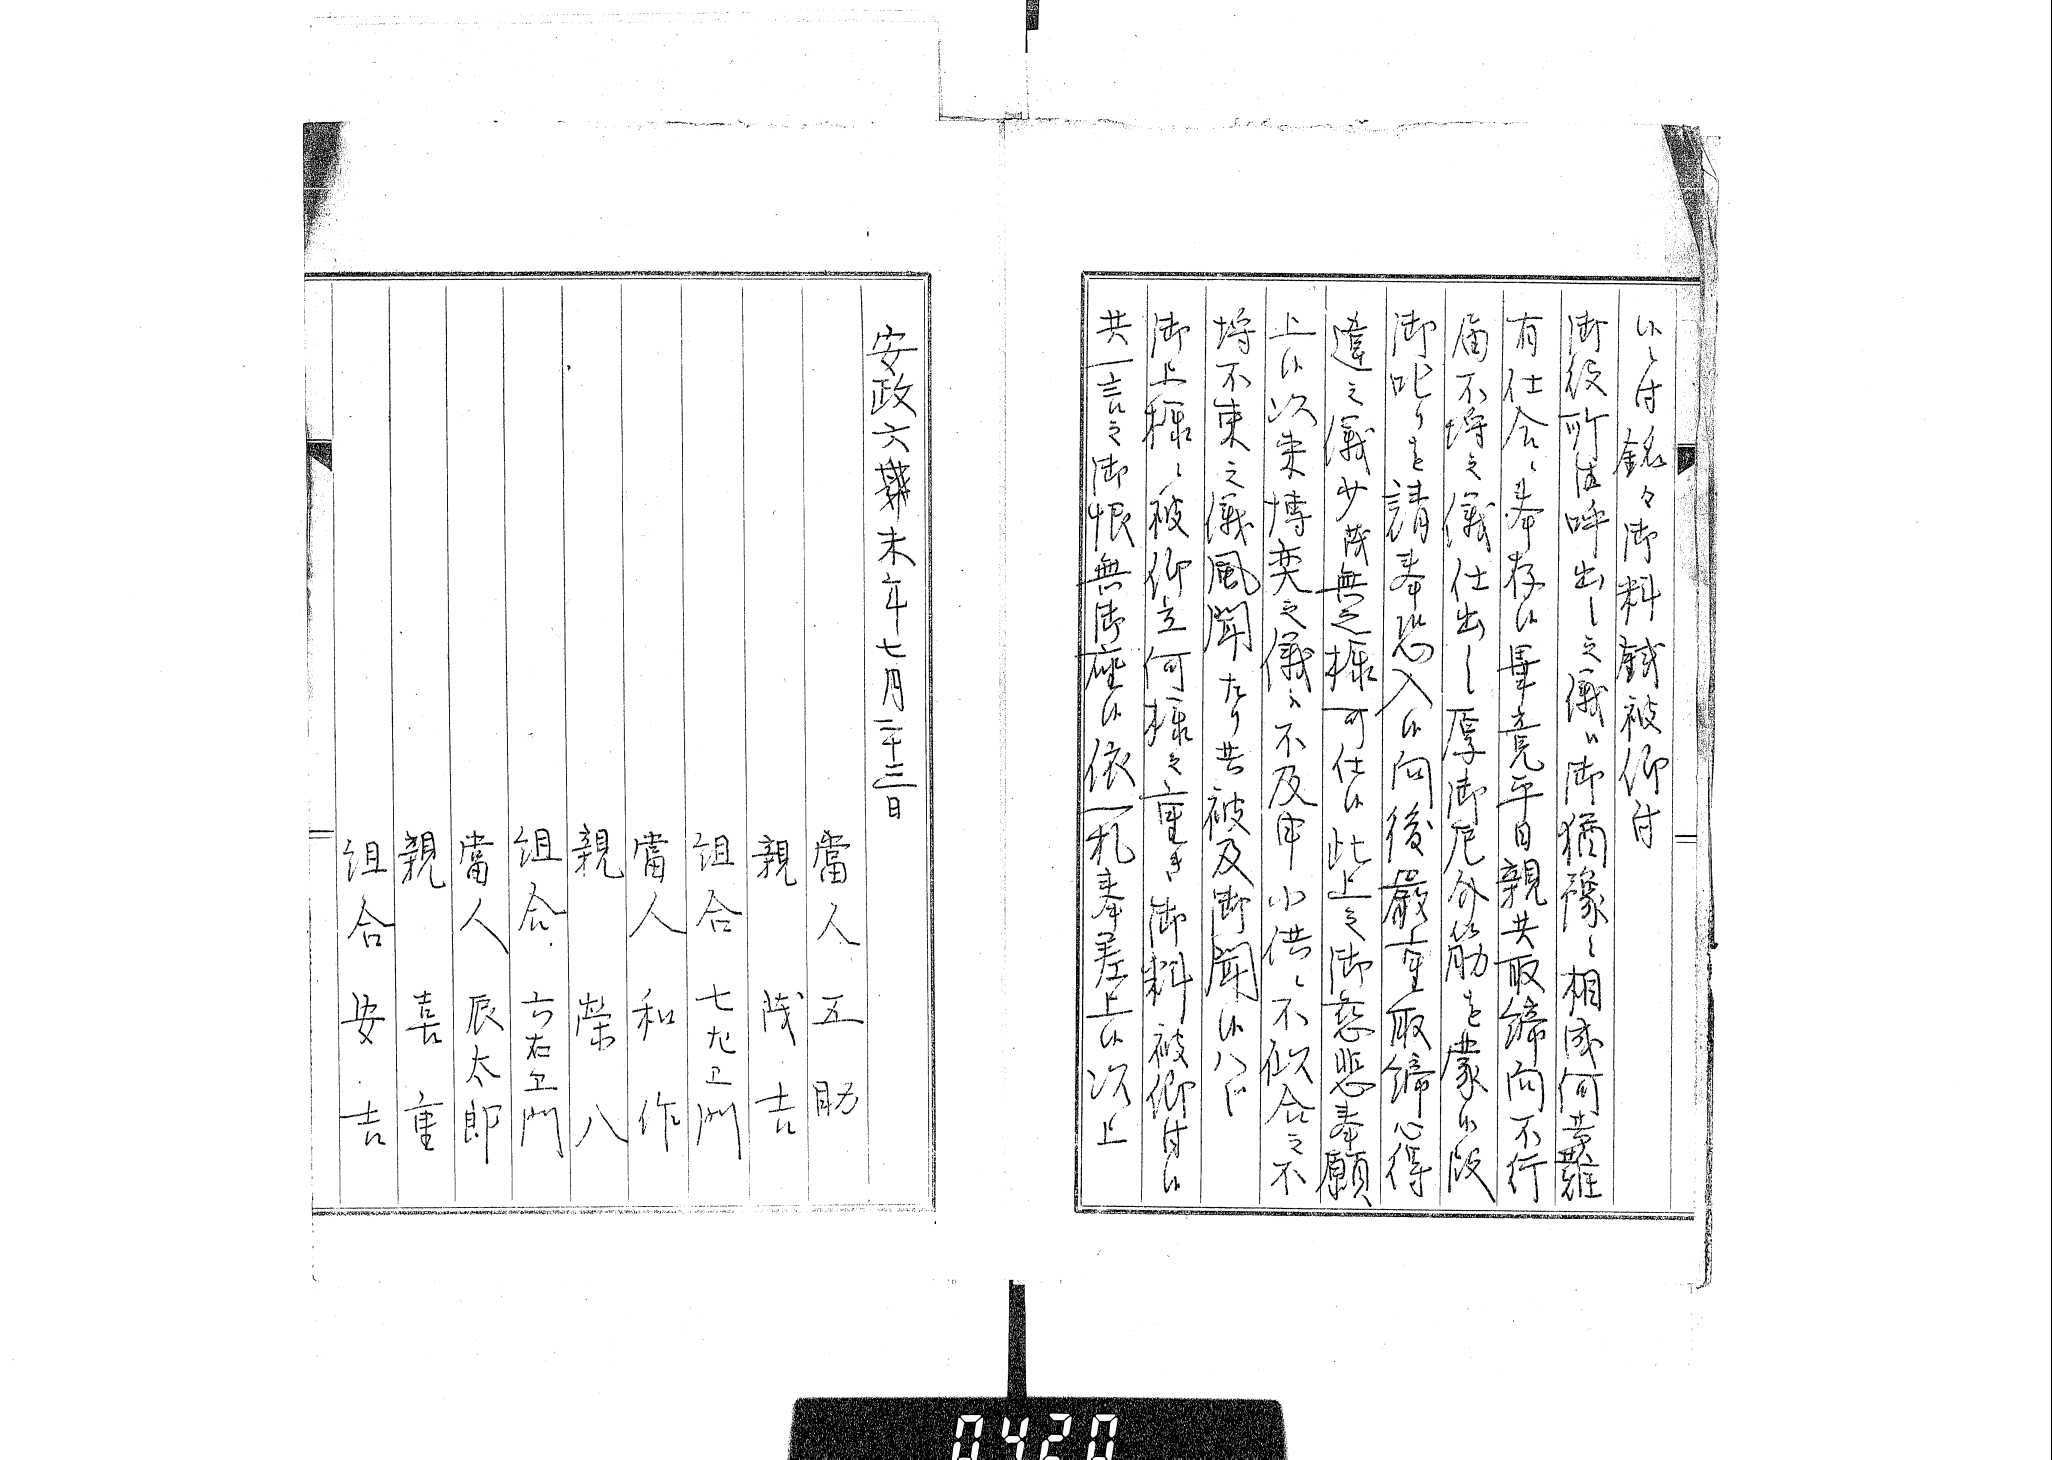 候ニ付銘々御料戯被仰付
御役所江呼出し之儀ハ御猶豫ニ相成何共難
有仕合ニ奉存候畢竟平日親共取締向不行
届不埒之儀仕出し厚御厄介筋を蒙候段
御叱りを請奉恐入候向後嚴重取締心得
違之儀少茂無之様可仕候此上之御慈悲奉願
上候次来博奕之儀ハ不及申小供ニ不似合之不
埒不束之儀風聞たり共被及御聞候ハゞ
御上様ニ被仰立何様之重き御料被仰付候
共一言之御恨無御座候依一札奉差上候次上
安政六未年七月二十三日
當人 五助
親 茂吉
組合 七左衛門
當人 和作
親 榮八
組合 六右衛門
當人 辰太郎
親 喜重
組合 安吉
0420